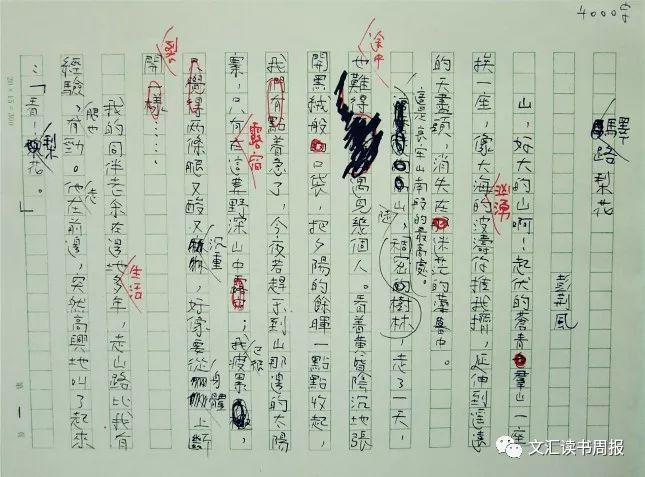 4000字
驛路梨花
彭荆風
山，好大的山啊！起伏的蒼青羣山一座
挨一座，像大海的波濤你推我擠，延伸到遥遠
汹湧
的天盡頭，消失在迷茫的薄暮中。
這是哀牢山南段的最高處。
陡山，稠密的樹林，走了一天，
途中
也難得遇見幾個人。看着黄昏陰沉地張
開黑絨般口袋，把夕陽的餘暉一點點收起，
我們有點着急了，今夜若趕不到山那邊的太陽
寨，只有在這荒野深山中，我疲累
露宿
已經
只覺得两條腿又酸又，好像要從上斷
沉重
身體
開一樣……
我的同伴老余在邊地多年，走山路比我有
生活
經驗，有勁。他在前邊，突然高興地叫了起來
肥也
走
：「看！梨花。」
20×15=300
文汇读书周报